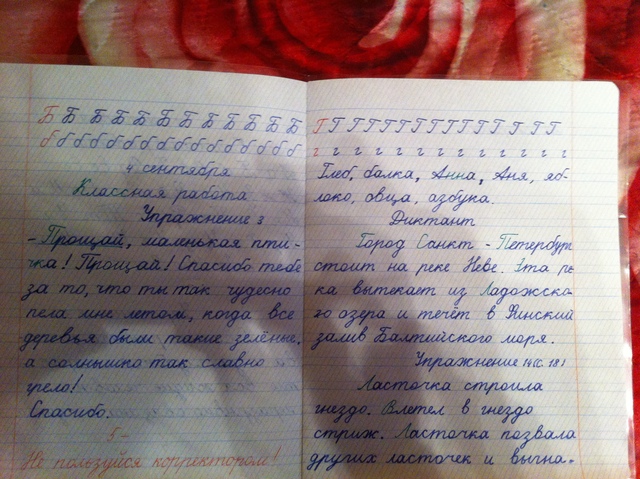 Б Б Б Б Б Б Б Б Б Б Б Б
б б б б б б б б б б б б б б б б
4 сентября
Классная работа
Упражнение 3
- Прощай, маленькая пти-
чка! Прощай! Спасибо тебе
за то, что ты так чудесно
пела мне летом, когда все
деревья были такие зелёные,
а солнышко так славно
грело!
Спасибо.
5-
Не пользуйся корректором!
Г Г Г Г Г Г Г Г Г Г Г Г Г Г Г
г г г г г г г г г г г г
Глеб, балка, Анна, Аня, яб-
локо, овца, азбука.
Диктант
Город Санкт - Петербург
стоит на реке Неве. Эта ре
ка вытекает из Ладожско-
го озера и течёт в Финский
залив Балтийского моря.
Упражнение 14 (с. 18)
Ласточка строила
гнездо. Влетел в гнездо
стриж. Ласточка позвала
других ласточек и выгна-